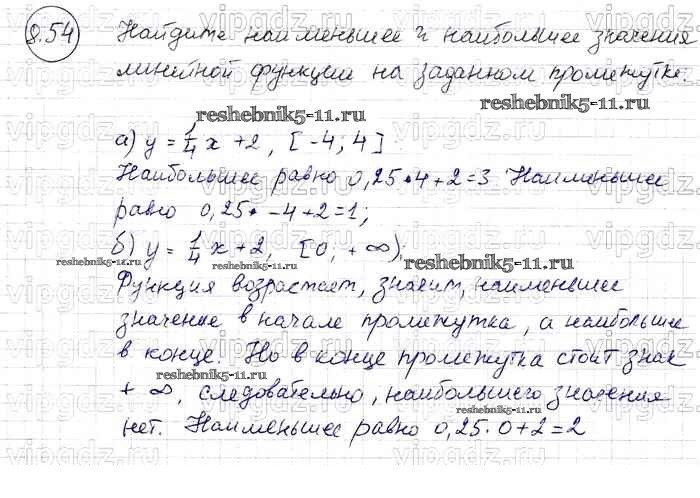 8.54 Найдите наименьшее и наибольшее значения
линейной функции на заданном промежутке.
reshebnik5-11.ru reshebnik5-11.ru
а) y = 1/4 x + 2, [-4; 4]
Наибольшее равно 0,25•4+2=3 Наименьшее
равно 0,25•-4+2=1;
б) y = 1/4 x + 2, [0, +∞),
reshebnik5-11.ru reshebnik5-11.ru
Функция возрастает, значит, наименьшее
значение в начале промежутка, а наибольшее
в конце. Но в конце промежутка стоит знак
reshebnik5-11.ru
+ ∞, следовательно, наибольшего значения
reshebnik5-11.ru
нет. Наименьшее равно 0,25·0+2=2
vipgdz.ru